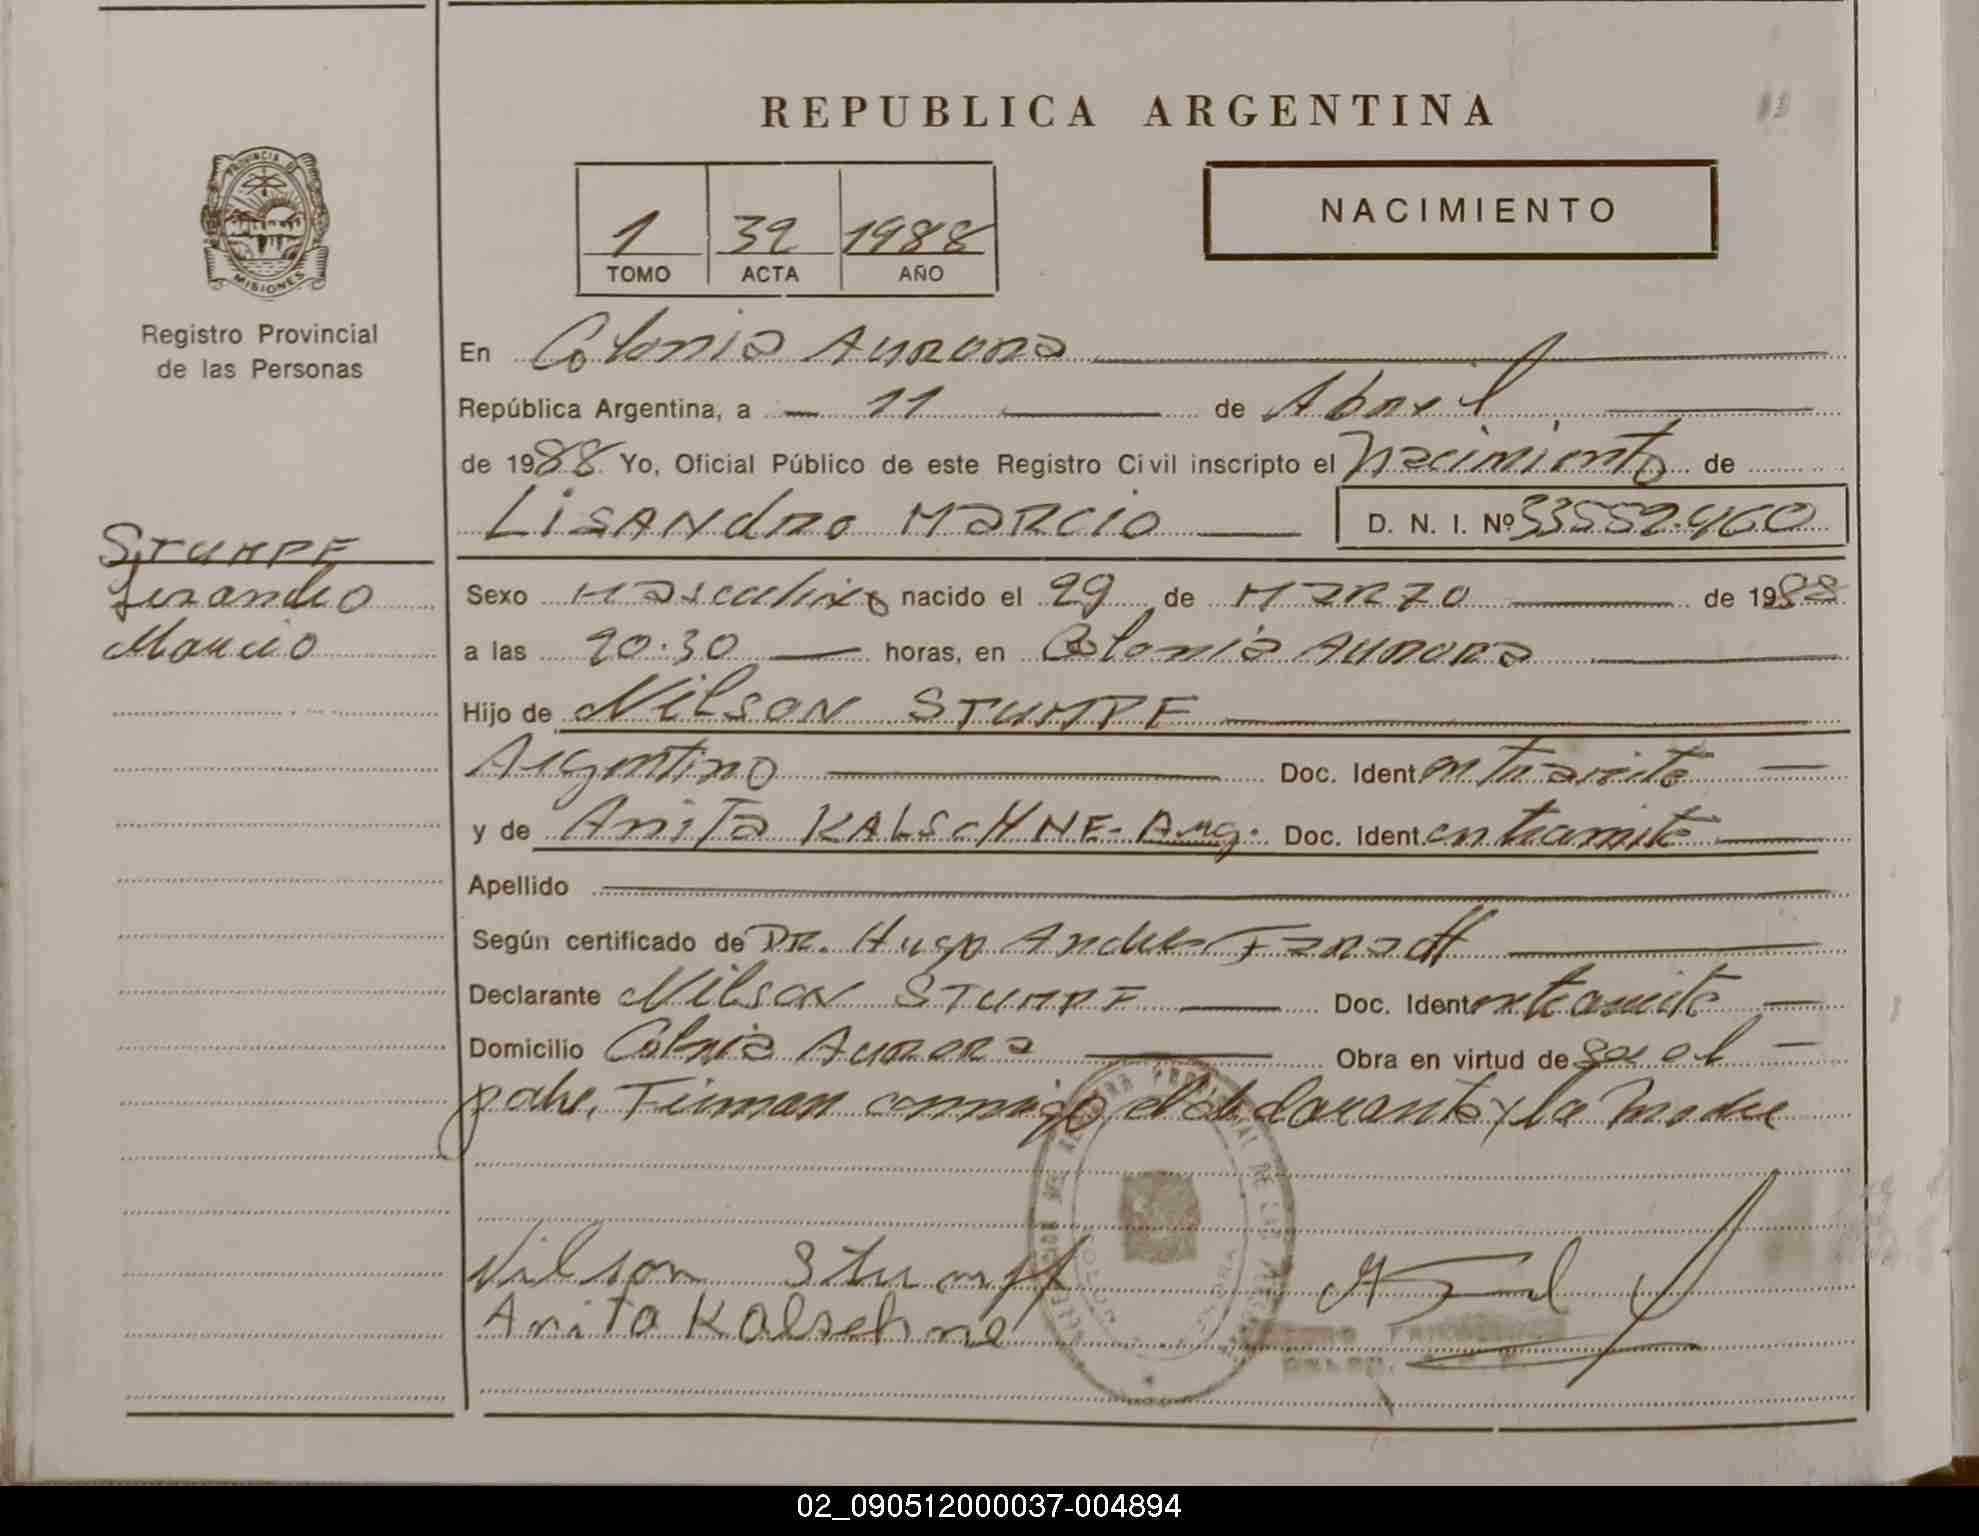 REPUBLICA ARGENTINA
PROVINCIA DE
MISIONES
Registro Provincial
de las Personas
1 32 1988
TOMO ACTA AÑO
NACIMIENTO
En Colonia Aurora
República Argentina, a 11 de Abril
de 1988 Yo, Oficial Público de este Registro Civil inscripto el Nacimiento de
LISANdro MARCIO D. N. I. Nº 33552.460
STUMPF
Lisandro
Marcio
Sexo Masculino nacido el 29 de MARZO de 1988
a las 20.30 horas, en Colonia Aurora
Hijo de Nilson STUMPF
Argentino Doc. Ident en tramite
y de Anita KALSCHNE - Arg. Doc. Ident. en tramite
Apellido
Según certificado de DR. Hugo
Declarante Nilson STUMPF Doc. Ident en tramite
Domicilio Colonia Aurora Obra en virtud de ser el
padre. Firman conmigo, el declarante y la madre
Nilson Stumpf
Anita Kalschne
02_090512000037-004894